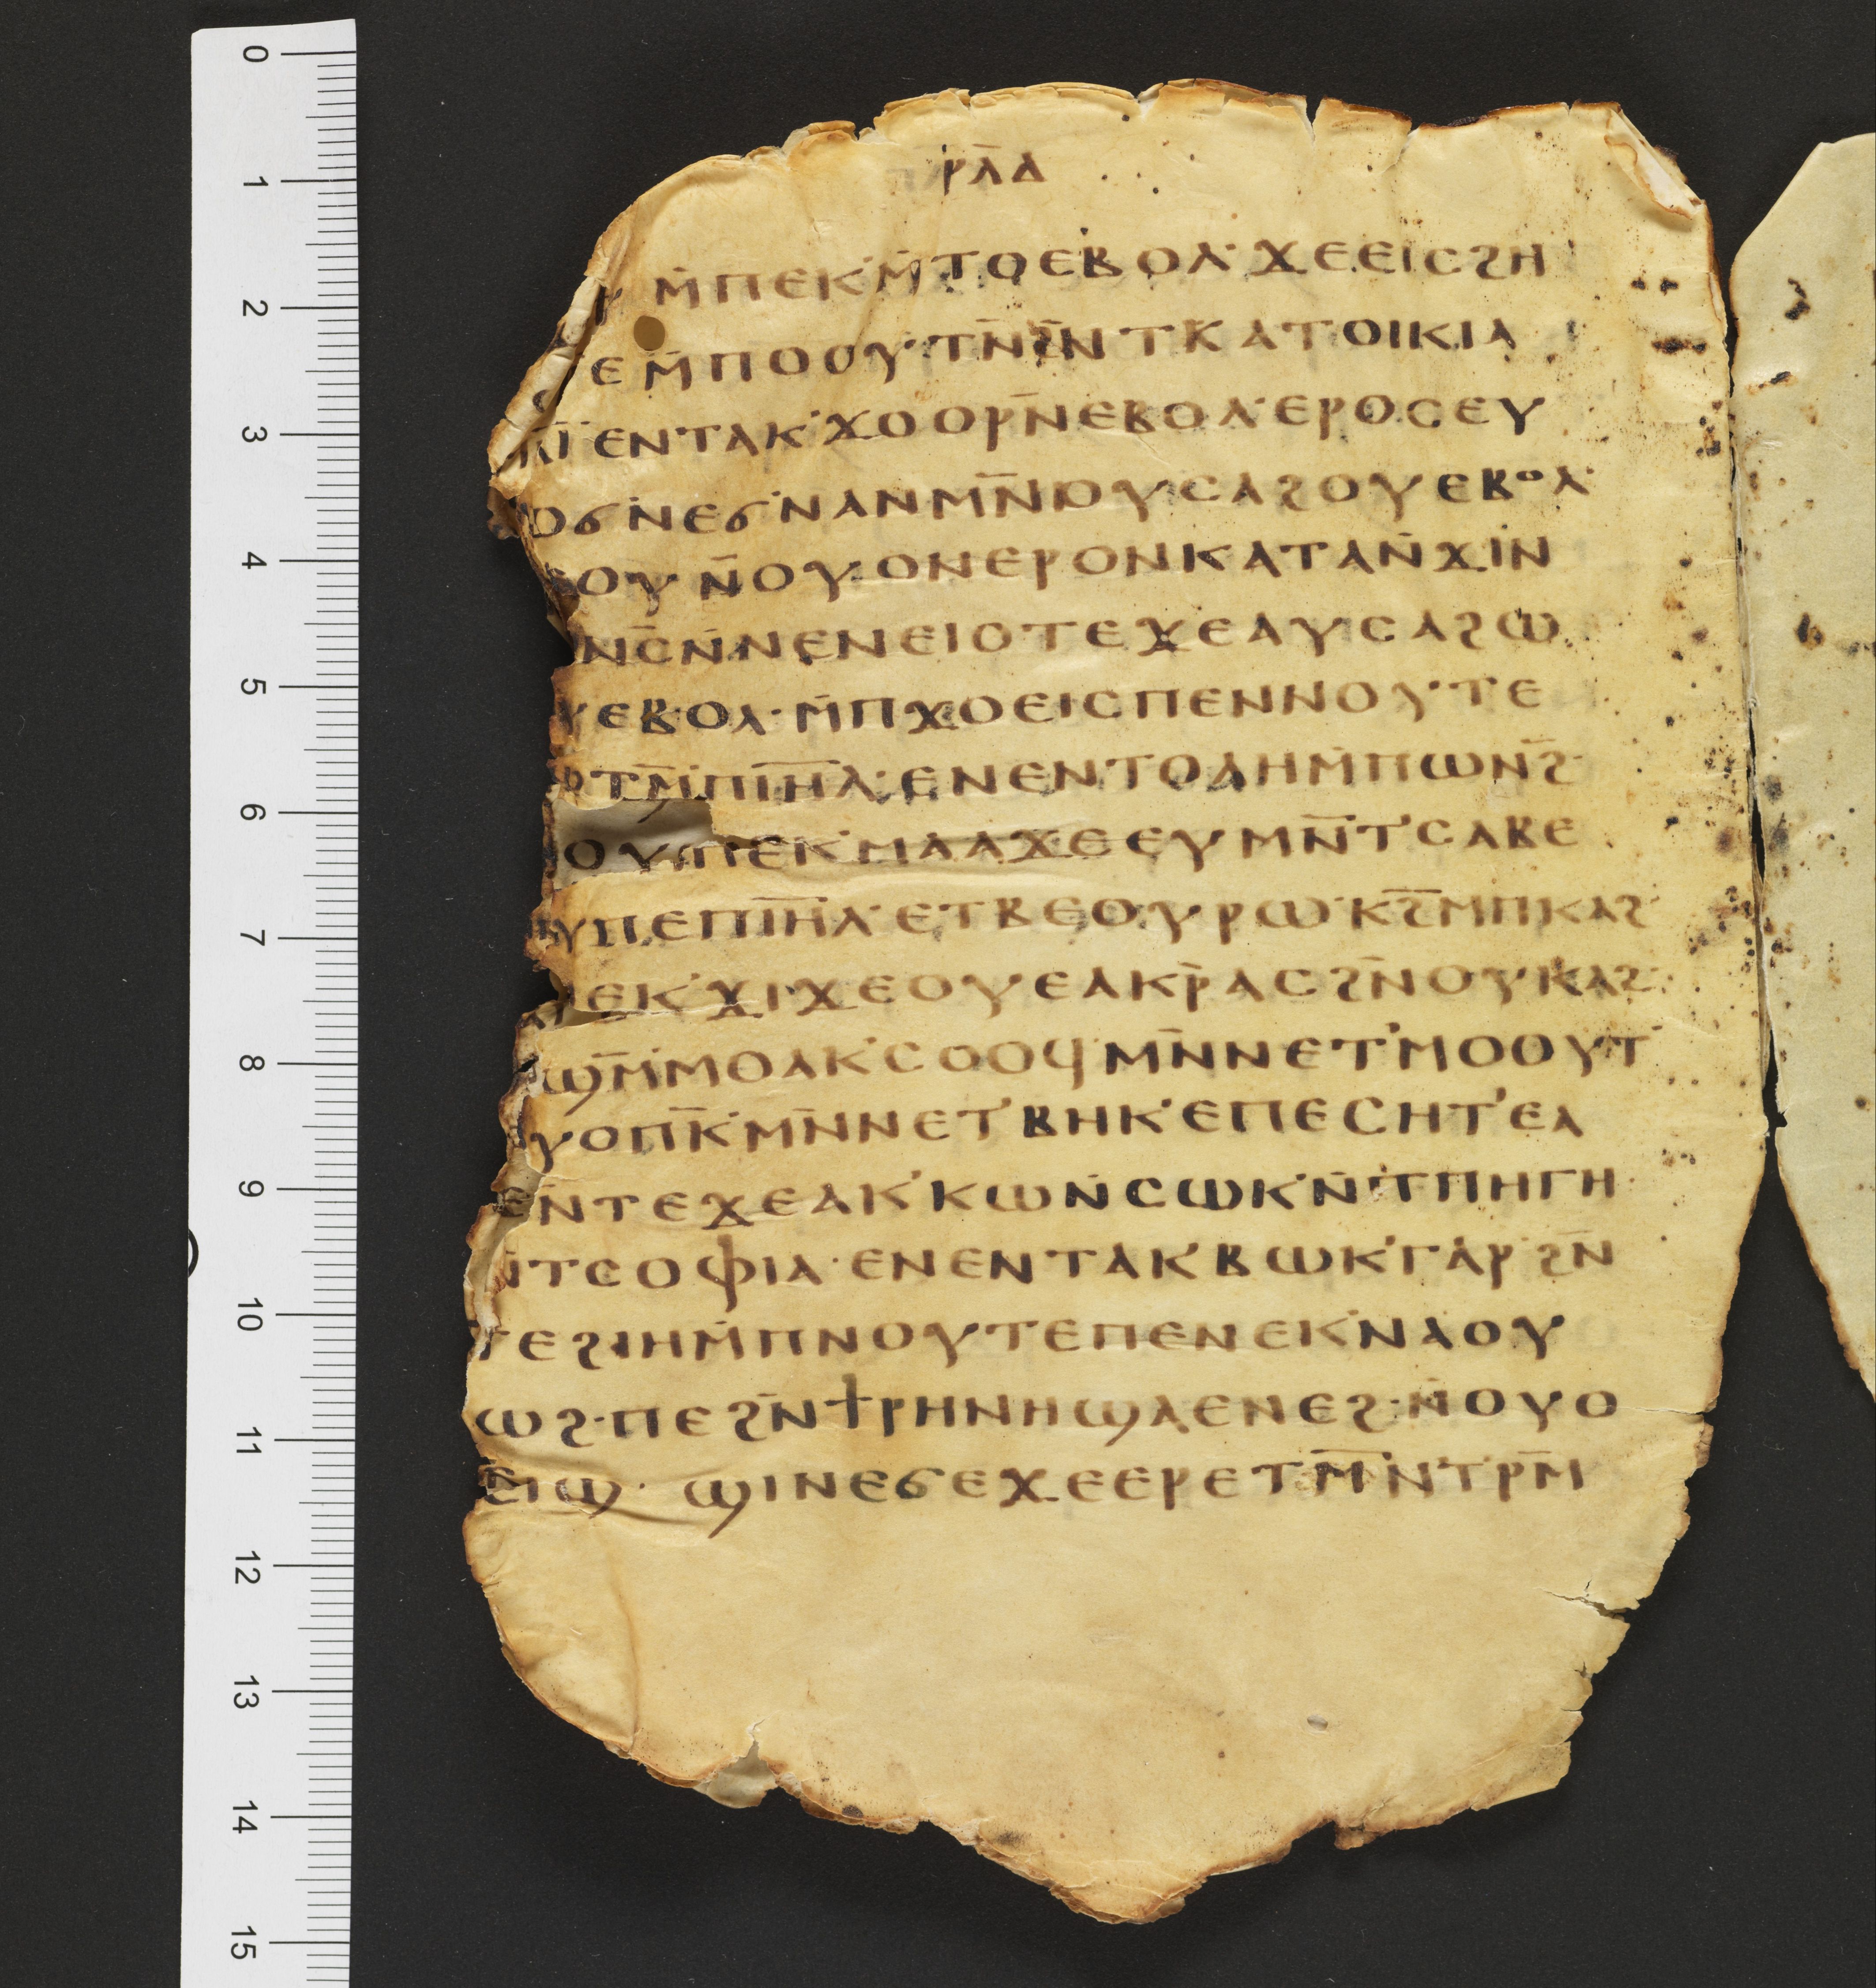 ⲣⲗⲇ
ⲙ̄ⲡⲉⲕⲙ̄ⲧⲟⲉⲃⲟⲗ· ϫⲉⲉⲓⲥϩⲏ
ⲉⲙ̄ⲡⲟⲟⲩ· ⲧⲛ̄ϩ̄ⲛⲧⲕⲁⲧⲟⲓⲕⲓⲁ
ⲁⲓ̈ⲉⲛⲧⲁⲕ'ϫⲟⲟⲣⲛ̄ⲉⲃⲟⲗ· ⲉⲣⲟⲥⲉⲩ
ⲟϭⲛⲉϭ'ⲛⲁⲛⲙⲛ̄ⲟⲩⲥⲁϩⲟⲩⲉⲃⲟⲗ·
ⲟⲩⲛ̄ⲟⲩⲟⲛⲉⲣⲟⲛⲕⲁⲧⲁⲛ̄ϫⲓⲛ
ⲛⲥ̄ⲛ̄ⲛⲉⲛⲉⲓⲟⲧⲉϫⲉⲁⲩⲥⲁϩⲱ
ⲩⲉⲃⲟⲗ· ⲙ̄ⲡϫⲟⲉⲓⲥⲡⲉⲛⲛⲟⲩⲧⲉ
ⲱⲧⲙ̄ⲡⲓ̄ⲏ̄ⲗ· ⲉⲛⲉⲛⲧⲟⲗⲏⲙ̄ⲡⲱⲛϩ̄·
ⲟⲩⲡⲉⲕ'ⲙⲁⲁϫⲉⲉⲩⲙⲛ̄ⲧ'ⲥⲁⲃⲉ
ⲟⲩⲡⲉⲡⲓ̄ⲏ̄ⲗ· ⲉⲧⲃⲉⲟⲩⲣⲱ'ⲕϩ̄ⲙ̄ⲡⲕⲁϩ·
ⲉⲕ'ϫⲓϫⲉⲟⲩⲉⲁⲕⲣ̄ⲁⲥϩⲛ̄ⲟⲩⲕⲁϩ·
ϣⲙ̄ⲙⲟⲁⲕ'ⲥⲟⲟϥ'ⲙⲛ̄ⲛⲉⲧ'ⲙⲟⲟⲩⲧ'
ⲩⲟⲡⲕ̄'ⲙⲛ̄ⲛⲉⲧ'ⲃⲏⲕ'ⲉⲡⲉⲥⲏⲧ'ⲉⲁ
ⲉⲛ̄ⲧⲉϫⲉⲁⲕ'ⲕⲱⲛ̄ⲥⲱⲕ'ⲛ̄ⲧⲡⲏⲅⲏ
ⲛ̄ⲧⲥⲟⲫⲓⲁ· ⲉⲛⲉⲛⲧⲁⲕ'ⲃⲱⲕ'ⲅⲁⲣ'ϩⲛ̄
ⲧⲉϩⲓⲏⲙ̄ⲡⲛⲟⲩⲧⲉⲡⲉⲛⲉⲕ'ⲛⲁⲟⲩ
ⲱϩ· ⲡⲉϩⲛ̄ϯⲣⲏⲛⲏϣⲁⲉⲛⲉϩ· ⲛ̄ⲟⲩⲟ
ⲉⲓϣ· ϣⲓⲛⲉϭⲉϫⲉⲉⲣⲉⲧⲙ̄ⲛ̄ⲧⲣⲙ̄